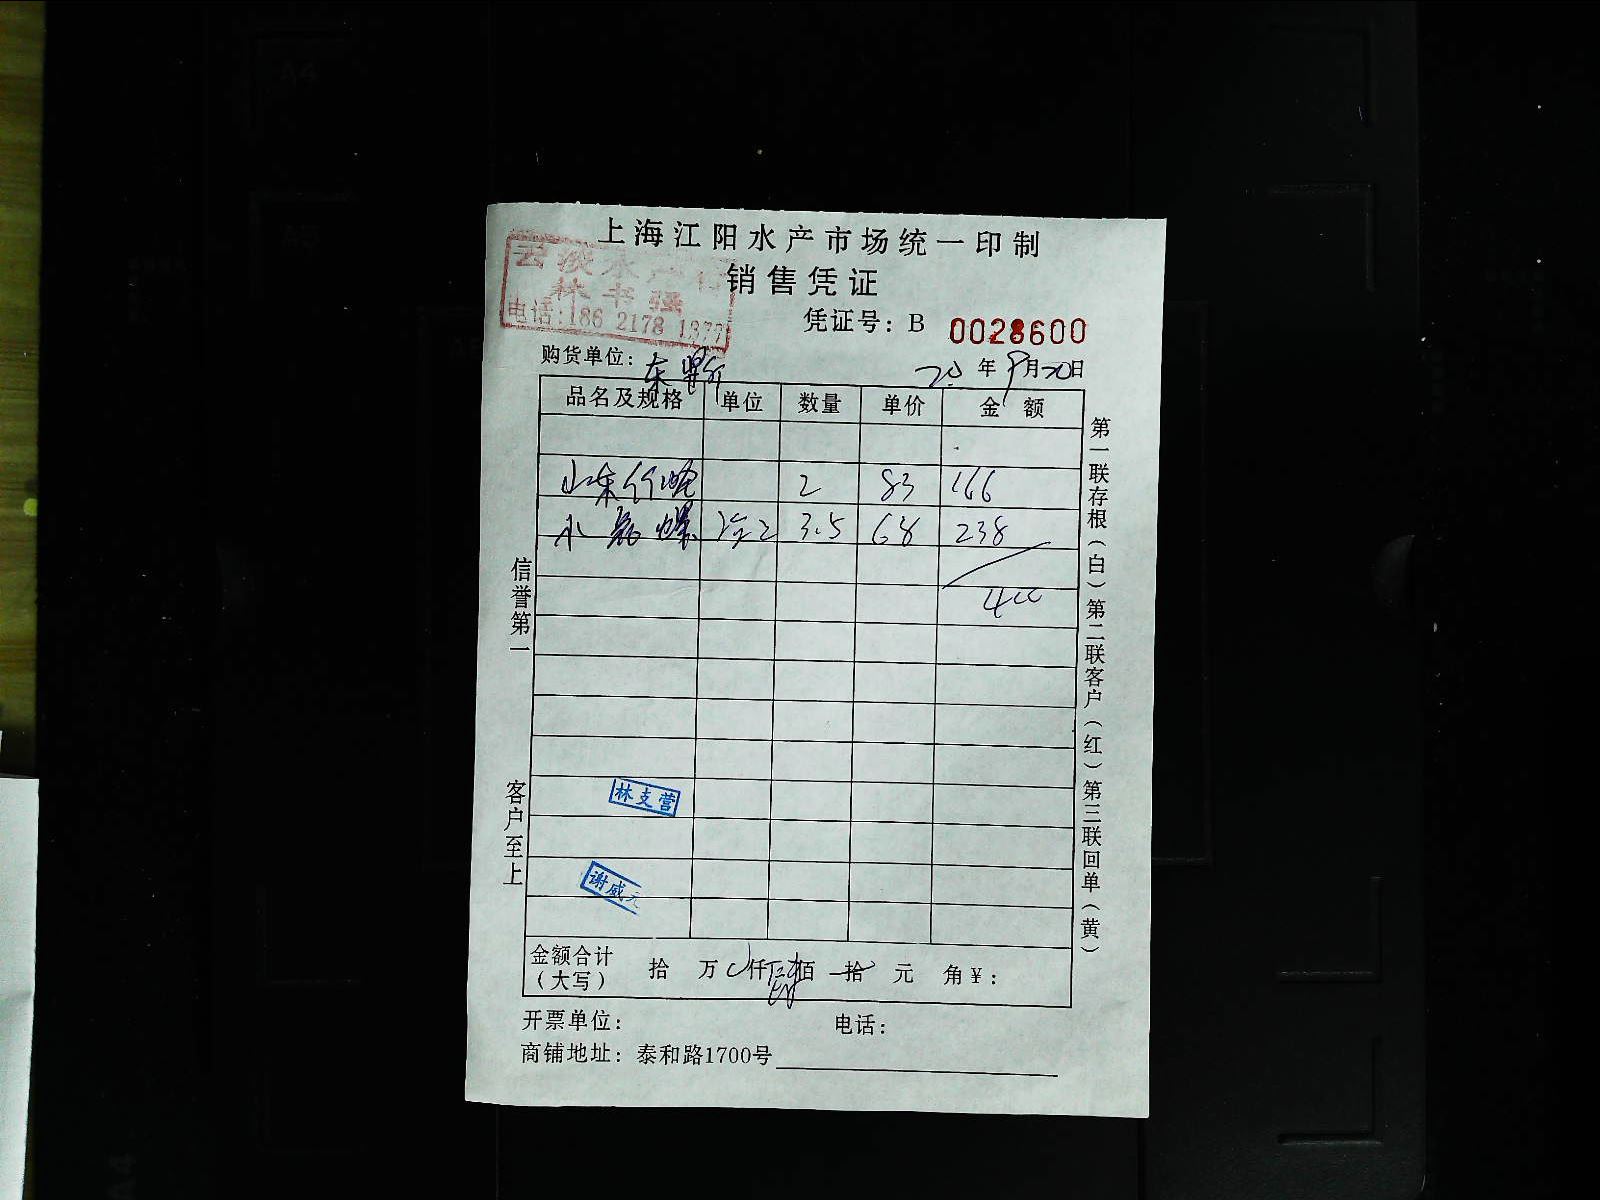 上海江阳水产市场统一印制
销售凭证
云淡水产行
林书强
电话:186 2178 1377
凭证号: B 0028600
购货单位: 东
20年9月20日
品名及规格 单位 数量 单价 金额
山东竹蛏 2 83 166
小 螺 3.5 68 238
400
信誉第一
客户至上
林支营
谢威元
第一联存根(白)第二联客户(红)第三联回单(黄)
金额合计(大写) 拾 万 仟 肆 佰 拾 元 角 ¥:
开票单位: 电话:
商铺地址: 泰和路1700号
A4
A5